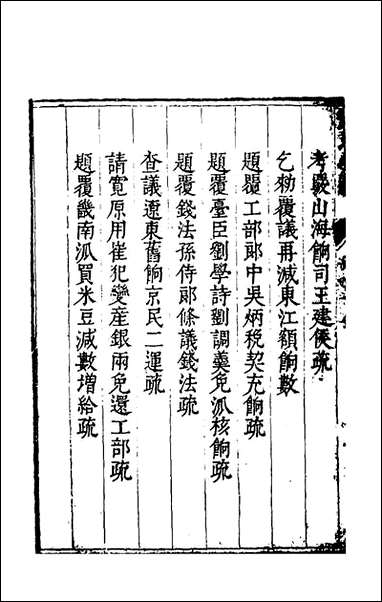 考覈山海餉司王建侯疏
乞勑覆議再減東江額餉數
題覆工部郎中吳炳稅契充餉疏
題覆臺臣劉學詩劉調羹免派核餉疏
題覆錢法孫侍郎條議錢法疏
查議遼東舊餉京民二運疏
請寬原用崔犯變産銀兩免還工部疏
題覆畿南派買米豆減數增給疏